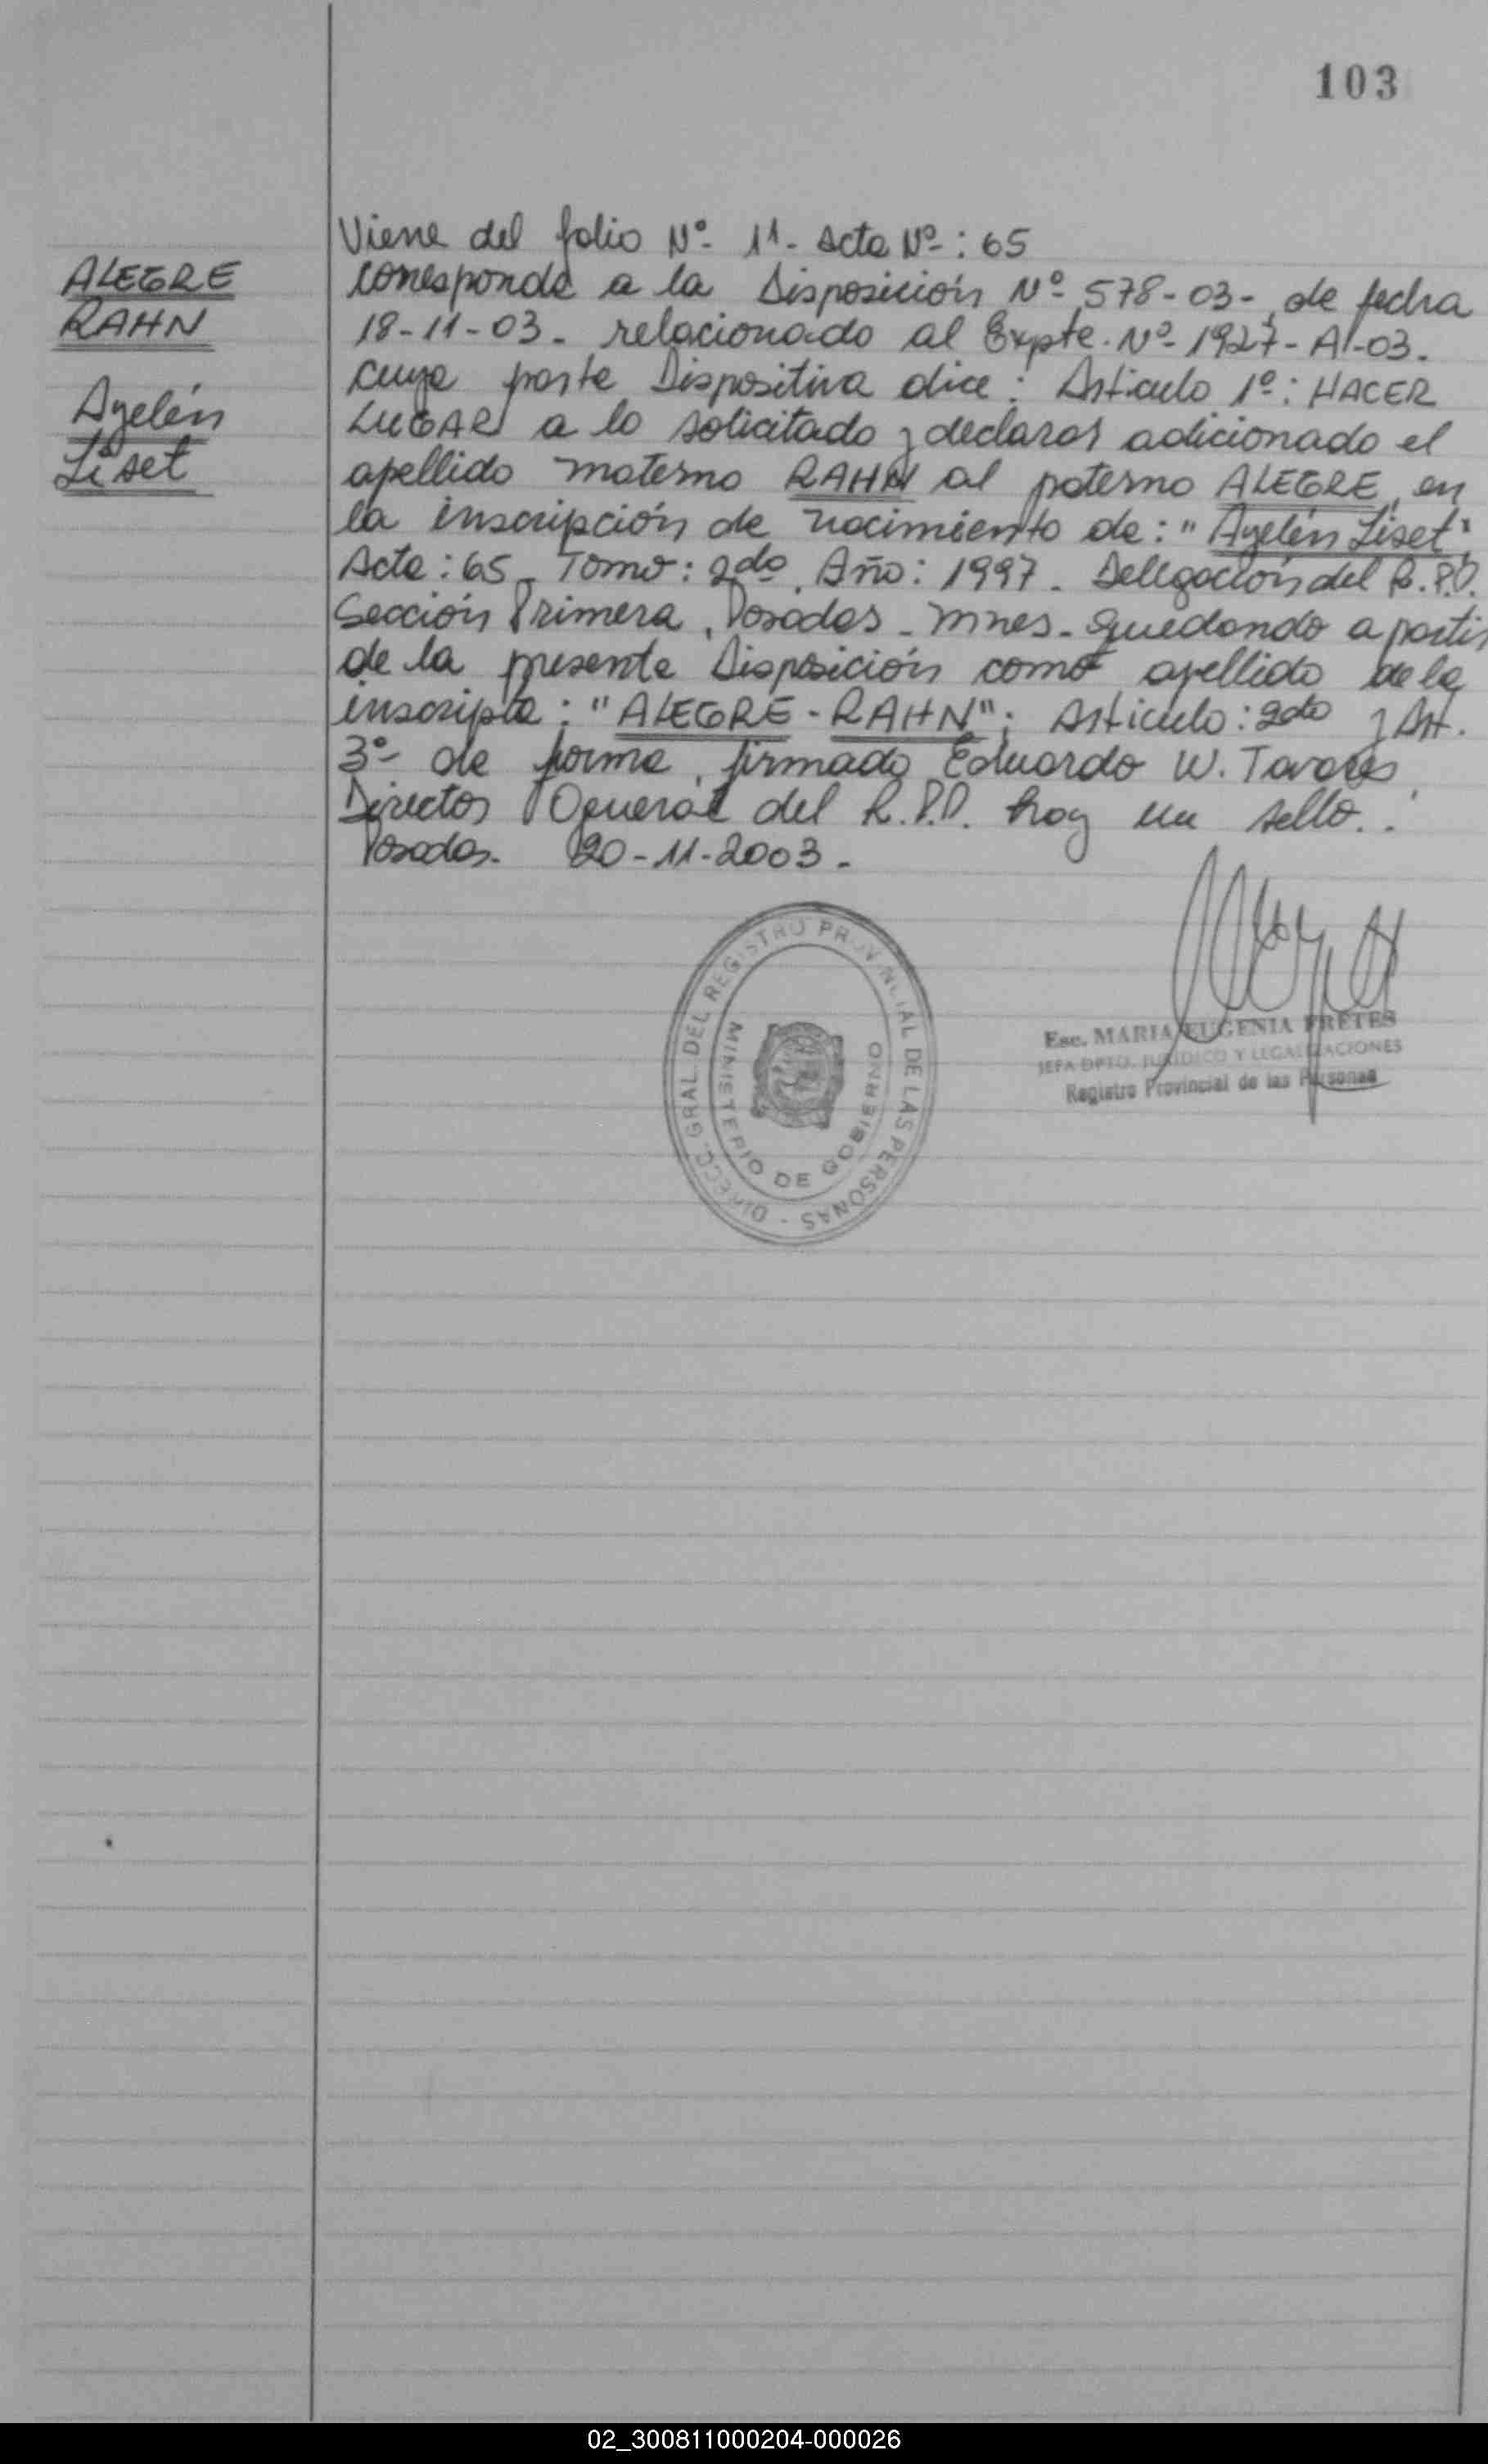 103
ALEGRE
RAHN
Ayelén
Liset
Viene del folio Nº 11 - Acta Nº: 65
corresponde a la Disposición Nº 578-03-, de fecha
18-11-03 - relacionado al Expte. Nº 1927-A-03.
cuya parte Dispositiva dice: Artículo 1º: HACER
LUGAR a lo solicitado y declarar adicionado el
apellido materno RAHN al paterno ALEGRE, en
la inscripción de nacimiento de: "Ayelén Liset",
Acta: 65 - Tomo: 2do. Año: 1997 - Delegación del R.P.P.
Sección Primera, Posadas - Mnes - Quedando a partir
de la presente Disposición como apellido de la
inscripta: "ALEGRE - RAHN"; Artículo: 2do y Art.
3º de forma, firmado Eduardo W. Tavares,
Director General del R.P.P. hay un sello..
Posadas. 20-11-2003 -
DIRECC. GRAL. DEL REGISTRO PROVINCIAL DE LAS PERSONAS -
MINISTERIO DE GOBIERNO
Esc. MARIA EUGENIA FRETES
JEFA DPTO. JURÍDICO Y LEGALIZACIONES
Registro Provincial de las Personas
02_300811000204-000026